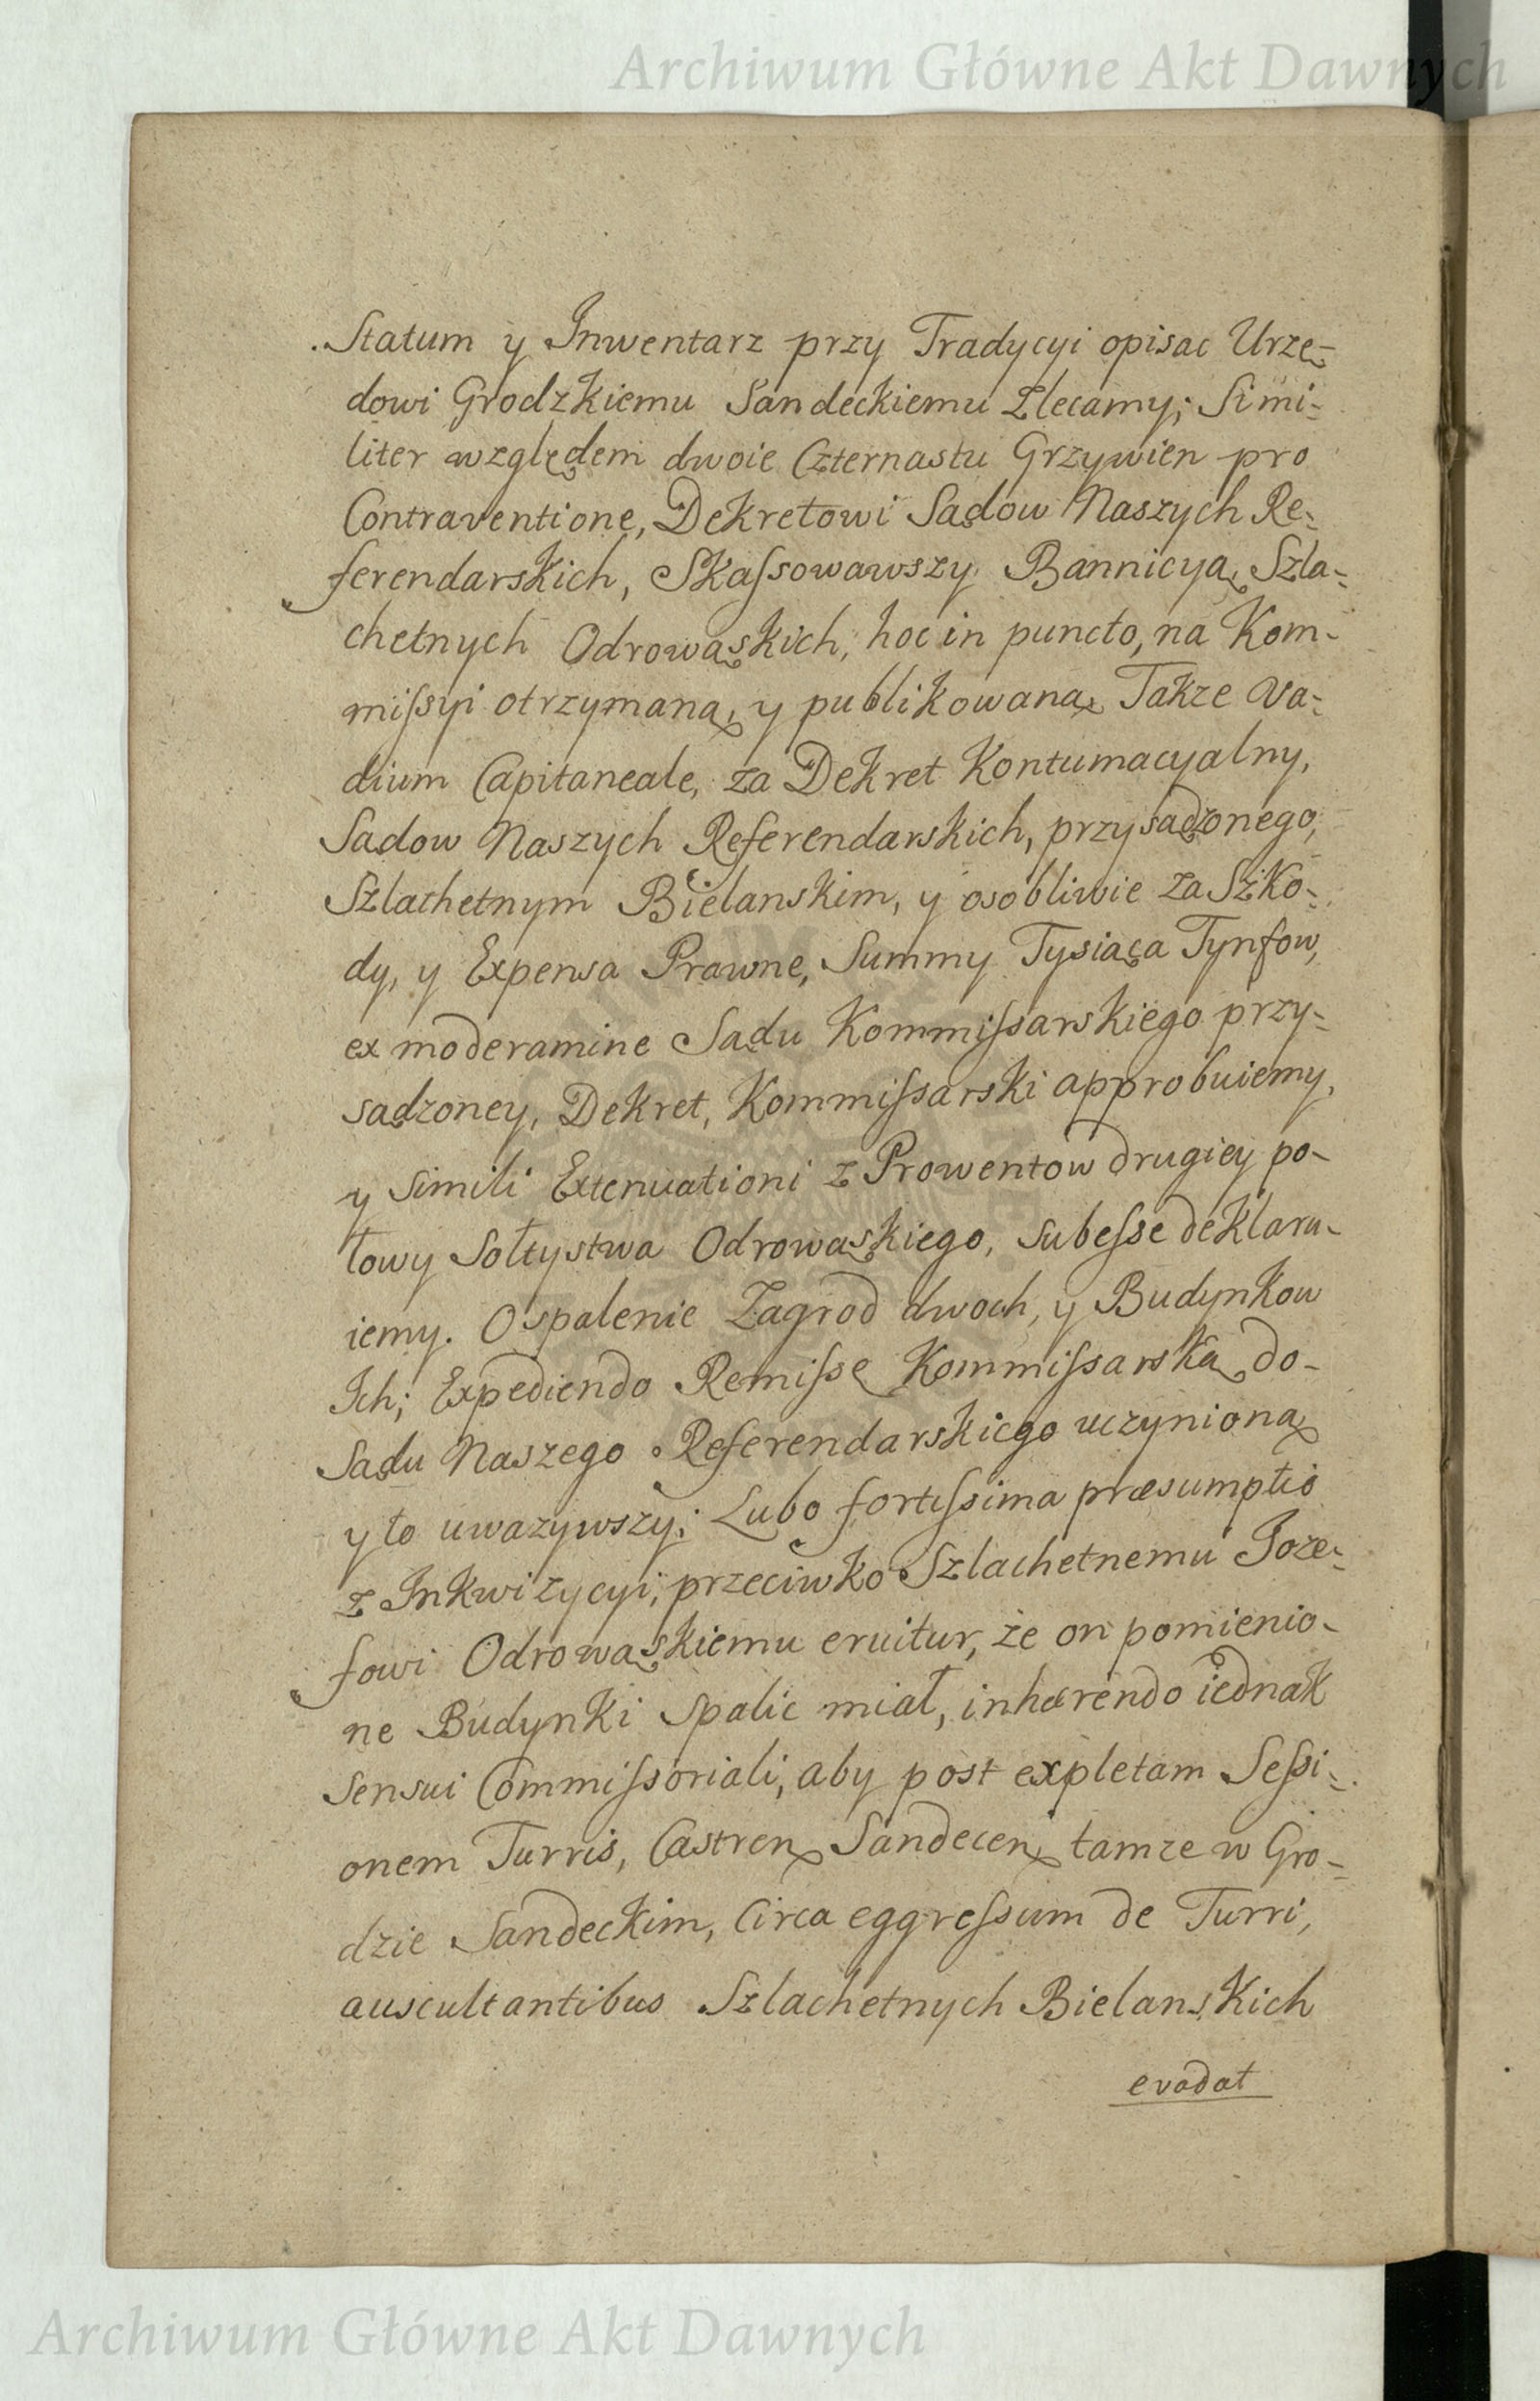 Archiwum Główne Akt Dawnych
Statum y Inwentarz przy Tradycyi opisac Urzę-
dowi Grodzkiemu Sandeckiemu zlecamy; Simi-
liter względem dwoie Czternastu Grzywien pro
Contraventione, Dekretowi Sądow Naszych Re-
ferendarskich, Skaſsowawszy Bannicyą Szla-
chetnych Odrowąskich, hoc in puncto, na Kom-
miſsyi otrzymaną, y publikowaną, Takze Va-
dium Capitaneale, za Dekret Kontumacyalny,
Sadow Naszych Referendarskich, przysądzonego,
Szlachetnym Bielanskim, y osobliwie za Szko-
dy, y Expensa Prawne, Summy Tysiąca Tynfow,
ex moderamine Sądu Kommiſsarskiego przy-
sądzoney, Dekret, Kommiſsarski approbuiemy,
y simili Extenuationi z Prowentow drugiey po-
łowy Sołtystwa Odrowąskiego, subeſse deklaru-
iemy. O spalenie Zagrod dwoch, y Budynkow
Ich; Expediendo Remiſsę Kommiſsarską do-
Sądu Naszego Referendarskiego uczynioną
y to uwazywszy; Lubo fortiſsima præsumptio
z Inkwizycyi, przeciwko Szlachetnemu Joze-
fowi Odrowąskiemu eruitur, że on pomienio-
ne Budynki spalic miał, inhærendo iednak
sensui Commiſsoriali, aby post expletam Seſsi-
onem Turris, Castren Sandecen tamze w Gro-
dzie Sandeckim, Circa eggreſsum de Turri,
auscultantibus Szlachetnych Bielanskich
evadat
Archiwum Główne Akt Dawnych